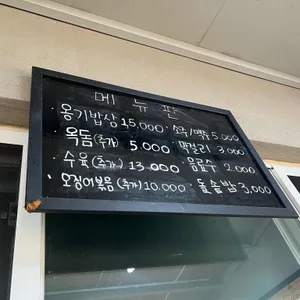 메뉴판
·옹기밥상 15,000 ·소주/맥주 5,000
·옥돔(추가) 5,000 ·막걸리 3,000
·수육(추가) 13,000 ·음료수 2,000
·오징어볶음(추가) 10,000 ·돌솥밥 3,000